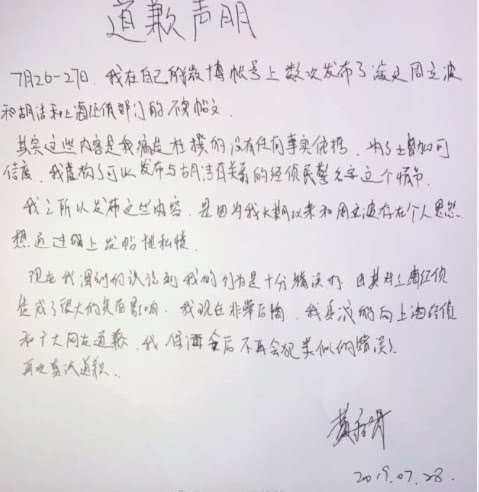 道歉声明
7月26-27日，我在自己的微博帐号上数次发布了涉及周立波
和胡洁和上海经侦部门的不实帖文
其实这些内容是我编造杜撰的没有任何事实依据，为了增加可
信度，我虚构了可以发布与胡洁有关系的经侦民警名字这个情节
我之所以发布这些内容，是因为我长期以来和周立波存在个人恩怨
想通过网上发帖泄私愤
现在我深刻的认识到我的行为是十分错误的，由其对上海经侦
造成了很大的负面影响，我现在非常后悔，我真诚的向上海经侦
和广大网友道歉，我保证今后不再会犯类似的错误，
再次真诚道歉。
2019.07.28.